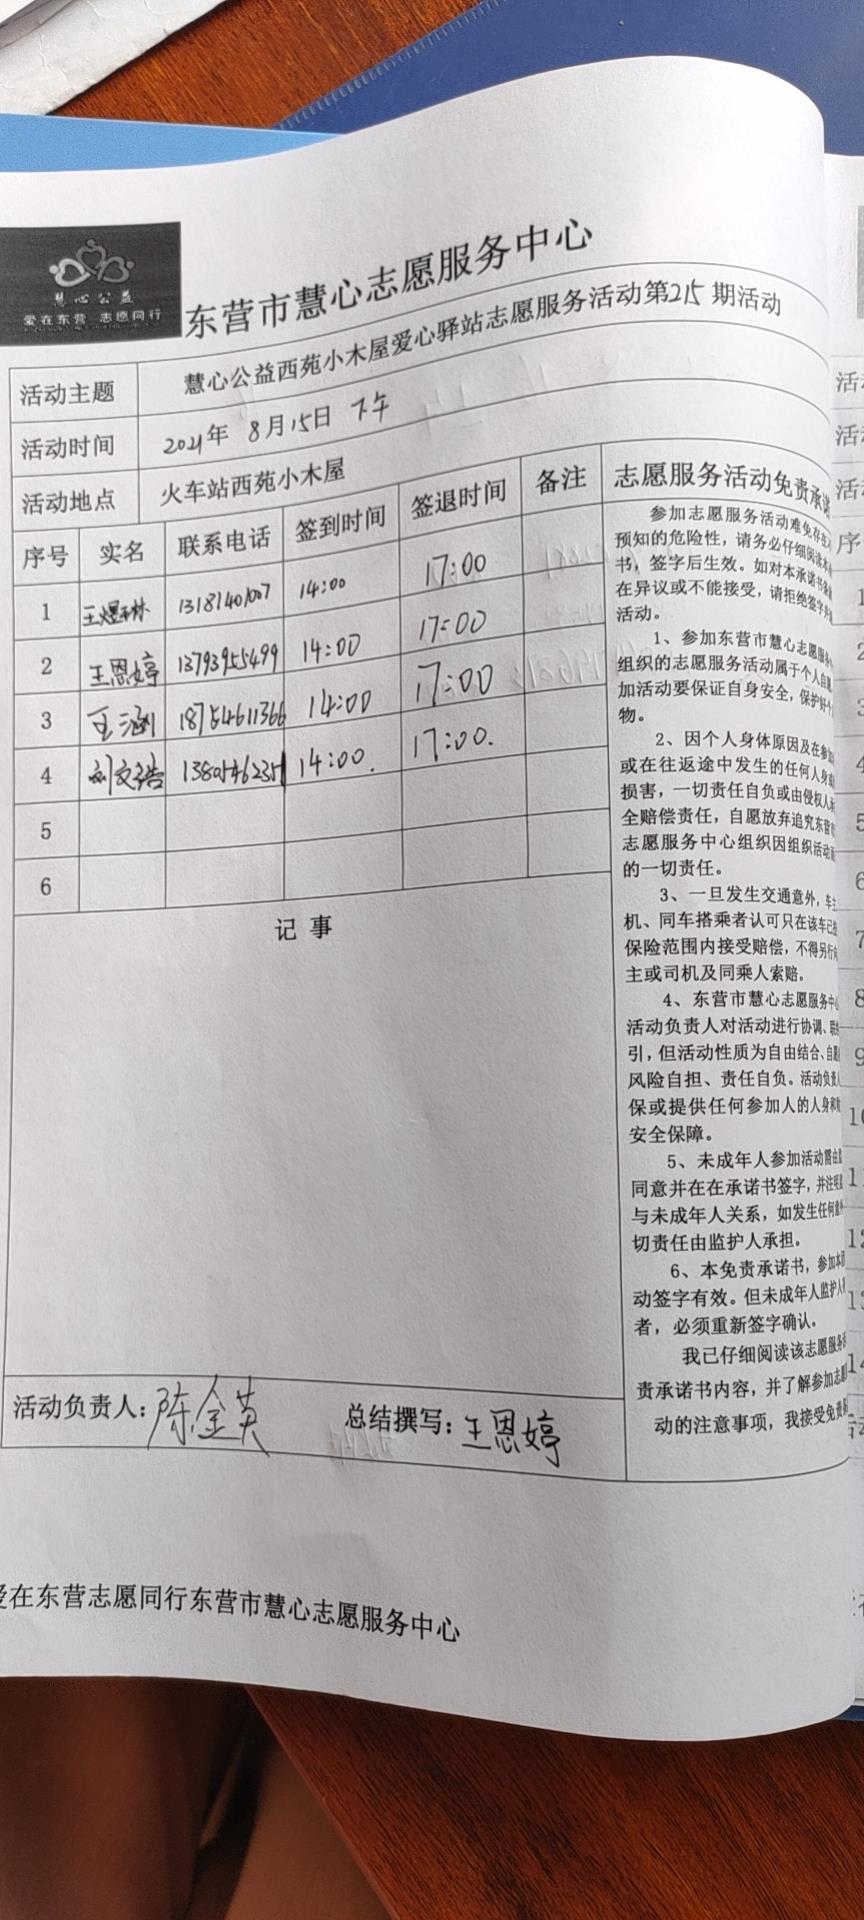 慧心公益
爱在东营 志愿同行
东营市慧心志愿服务中心
活动主题 慧心公益西苑小木屋爱心驿站志愿服务活动第215期活动
活动时间 2021年 8月15日 下午
活动地点 火车站西苑小木屋
序号 实名 联系电话 签到时间 签退时间 备注
1 王煜琳 13181401007 14:00 17:00
2 王恩婷 13793955499 14:00 17:00
3 王涵 18754611366 14:00 17:00
4 刘文浩 1380546235 14:00. 17:00.
5
6
记 事
活动负责人: 陈金英 总结撰写: 王恩婷
志愿服务活动免责承诺
参加志愿服务活动难免存在
预知的危险性，请务必仔细阅读本
书，签字后生效。如对本承诺书
在异议或不能接受，请拒绝签字
活动。
1、参加东营市慧心志愿服务
组织的志愿服务活动属于个人自愿
加活动要保证自身安全，保护好个
物。
2、因个人身体原因及在参加
或在往返途中发生的任何人身
损害，一切责任自负或由侵权人
全赔偿责任，自愿放弃追究东营
志愿服务中心组织因组织活动
的一切责任。
3、一旦发生交通意外，车主
机、同车搭乘者认可只在该车已
保险范围内接受赔偿，不得另行向
主或司机及同乘人索赔。
4、东营市慧心志愿服务中心
活动负责人对活动进行协调、联
引，但活动性质为自由结合、自愿
风险自担、责任自负。活动负责人
保或提供任何参加人的人身和
安全保障。
5、未成年人参加活动需由
同意并在在承诺书签字，并注明
与未成年人关系，如发生任何意外
切责任由监护人承担。
6、本免责承诺书，参加本
动签字有效。但未成年人监护人
者，必须重新签字确认。
我已仔细阅读该志愿服务
责承诺书内容，并了解参加志愿
动的注意事项，我接受免责
爱在东营志愿同行东营市慧心志愿服务中心